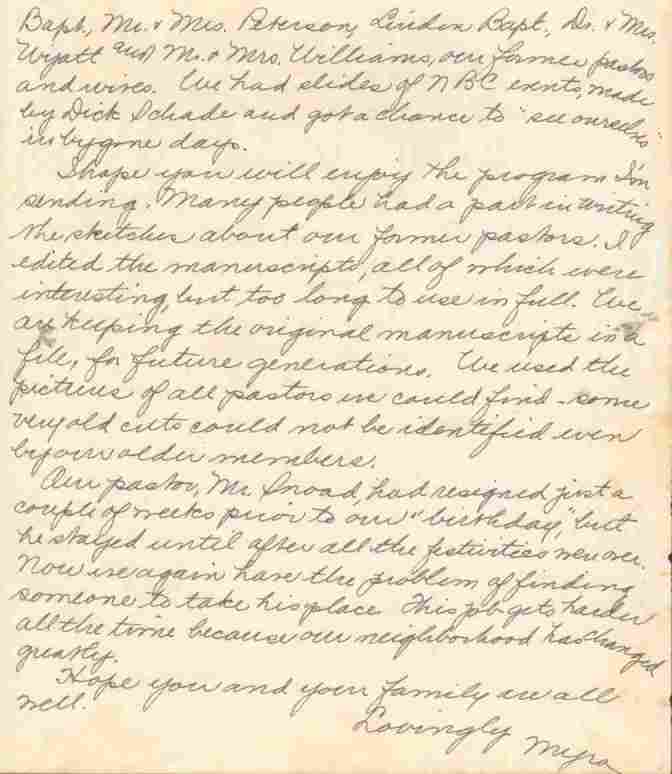 Bapt., Mr. & Mrs. Peterson, Lindon Bapt., Dr. & Mrs.
Wyatt and Mr. & Mrs. Williams, our former pastors
and wives. We had slides of NBC events, made
by Dick Schade and got a chance to "see ourselves"
in bygone days.
I hope you will enjoy the program I'm
sending. Many people had a part in writing
the sketches about our former pastors. I
edited the manuscripts, all of which were
interesting, but too long to use in full. We
are keeping the original manuscripts in a
file, for future generations. We used the
pictures of all pastors we could find - some
very old cuts could not be identified even
by our older members.
Our pastor, Mr. Snoad, had resigned just a
couple of weeks prior to our "birthday," but
he stayed until after all the festivities were over.
Now we again have the problem of finding
someone to take his place. This job gets harder
all the time because our neighborhood has changed
greatly.
Hope you and your family are all
well.
Lovingly
Myra